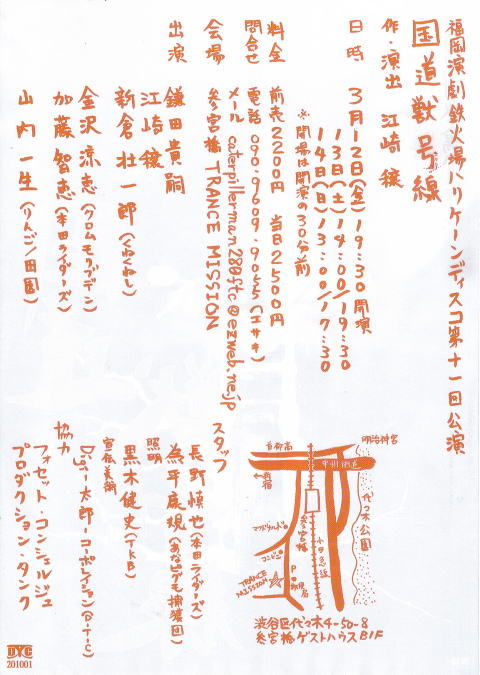 福岡演劇鉄火場ハリケーンディスコ第十一回公演
国道獣号線
作・演出 江崎穣
日時 3月12日(金)19:30開演
13日(土)14:00/19:30
14日(日)13:00/17:30
※開場は開演の30分前
料金 前売2200円 当日2500円
問合せ 電話 090-9609-9055(エサキ)
メール caterpillerman280ftc@ezweb.ne.jp
会場 参宮橋TRANCE MISSION
出演 鎌田貴嗣
江崎穣
新倉壮一郎(くねくねし)
金沢涼恵(クロムモリブデン)
加藤智恵(本田ライダーズ)
山内一生(りんご/田園)
スタッフ
長野慎也(本田ライダーズ)
為平康規(あなピグモ捕獲団)
照明
黒木健史(TKB)
宣伝美術
Digi-太郎-コーポレイション(D-T-C)
協力
フォセット・コンシェルジュ
プロダクション・タンク
首都高
明治神宮
甲州街道
←新宿
代々木公園
マクドナルド
参宮橋
小田急線
コンビニ
P
郵便局
TRANCE MISSION
渋谷区代々木4-50-8
参宮橋ゲストハウスB1F
DTC
201001